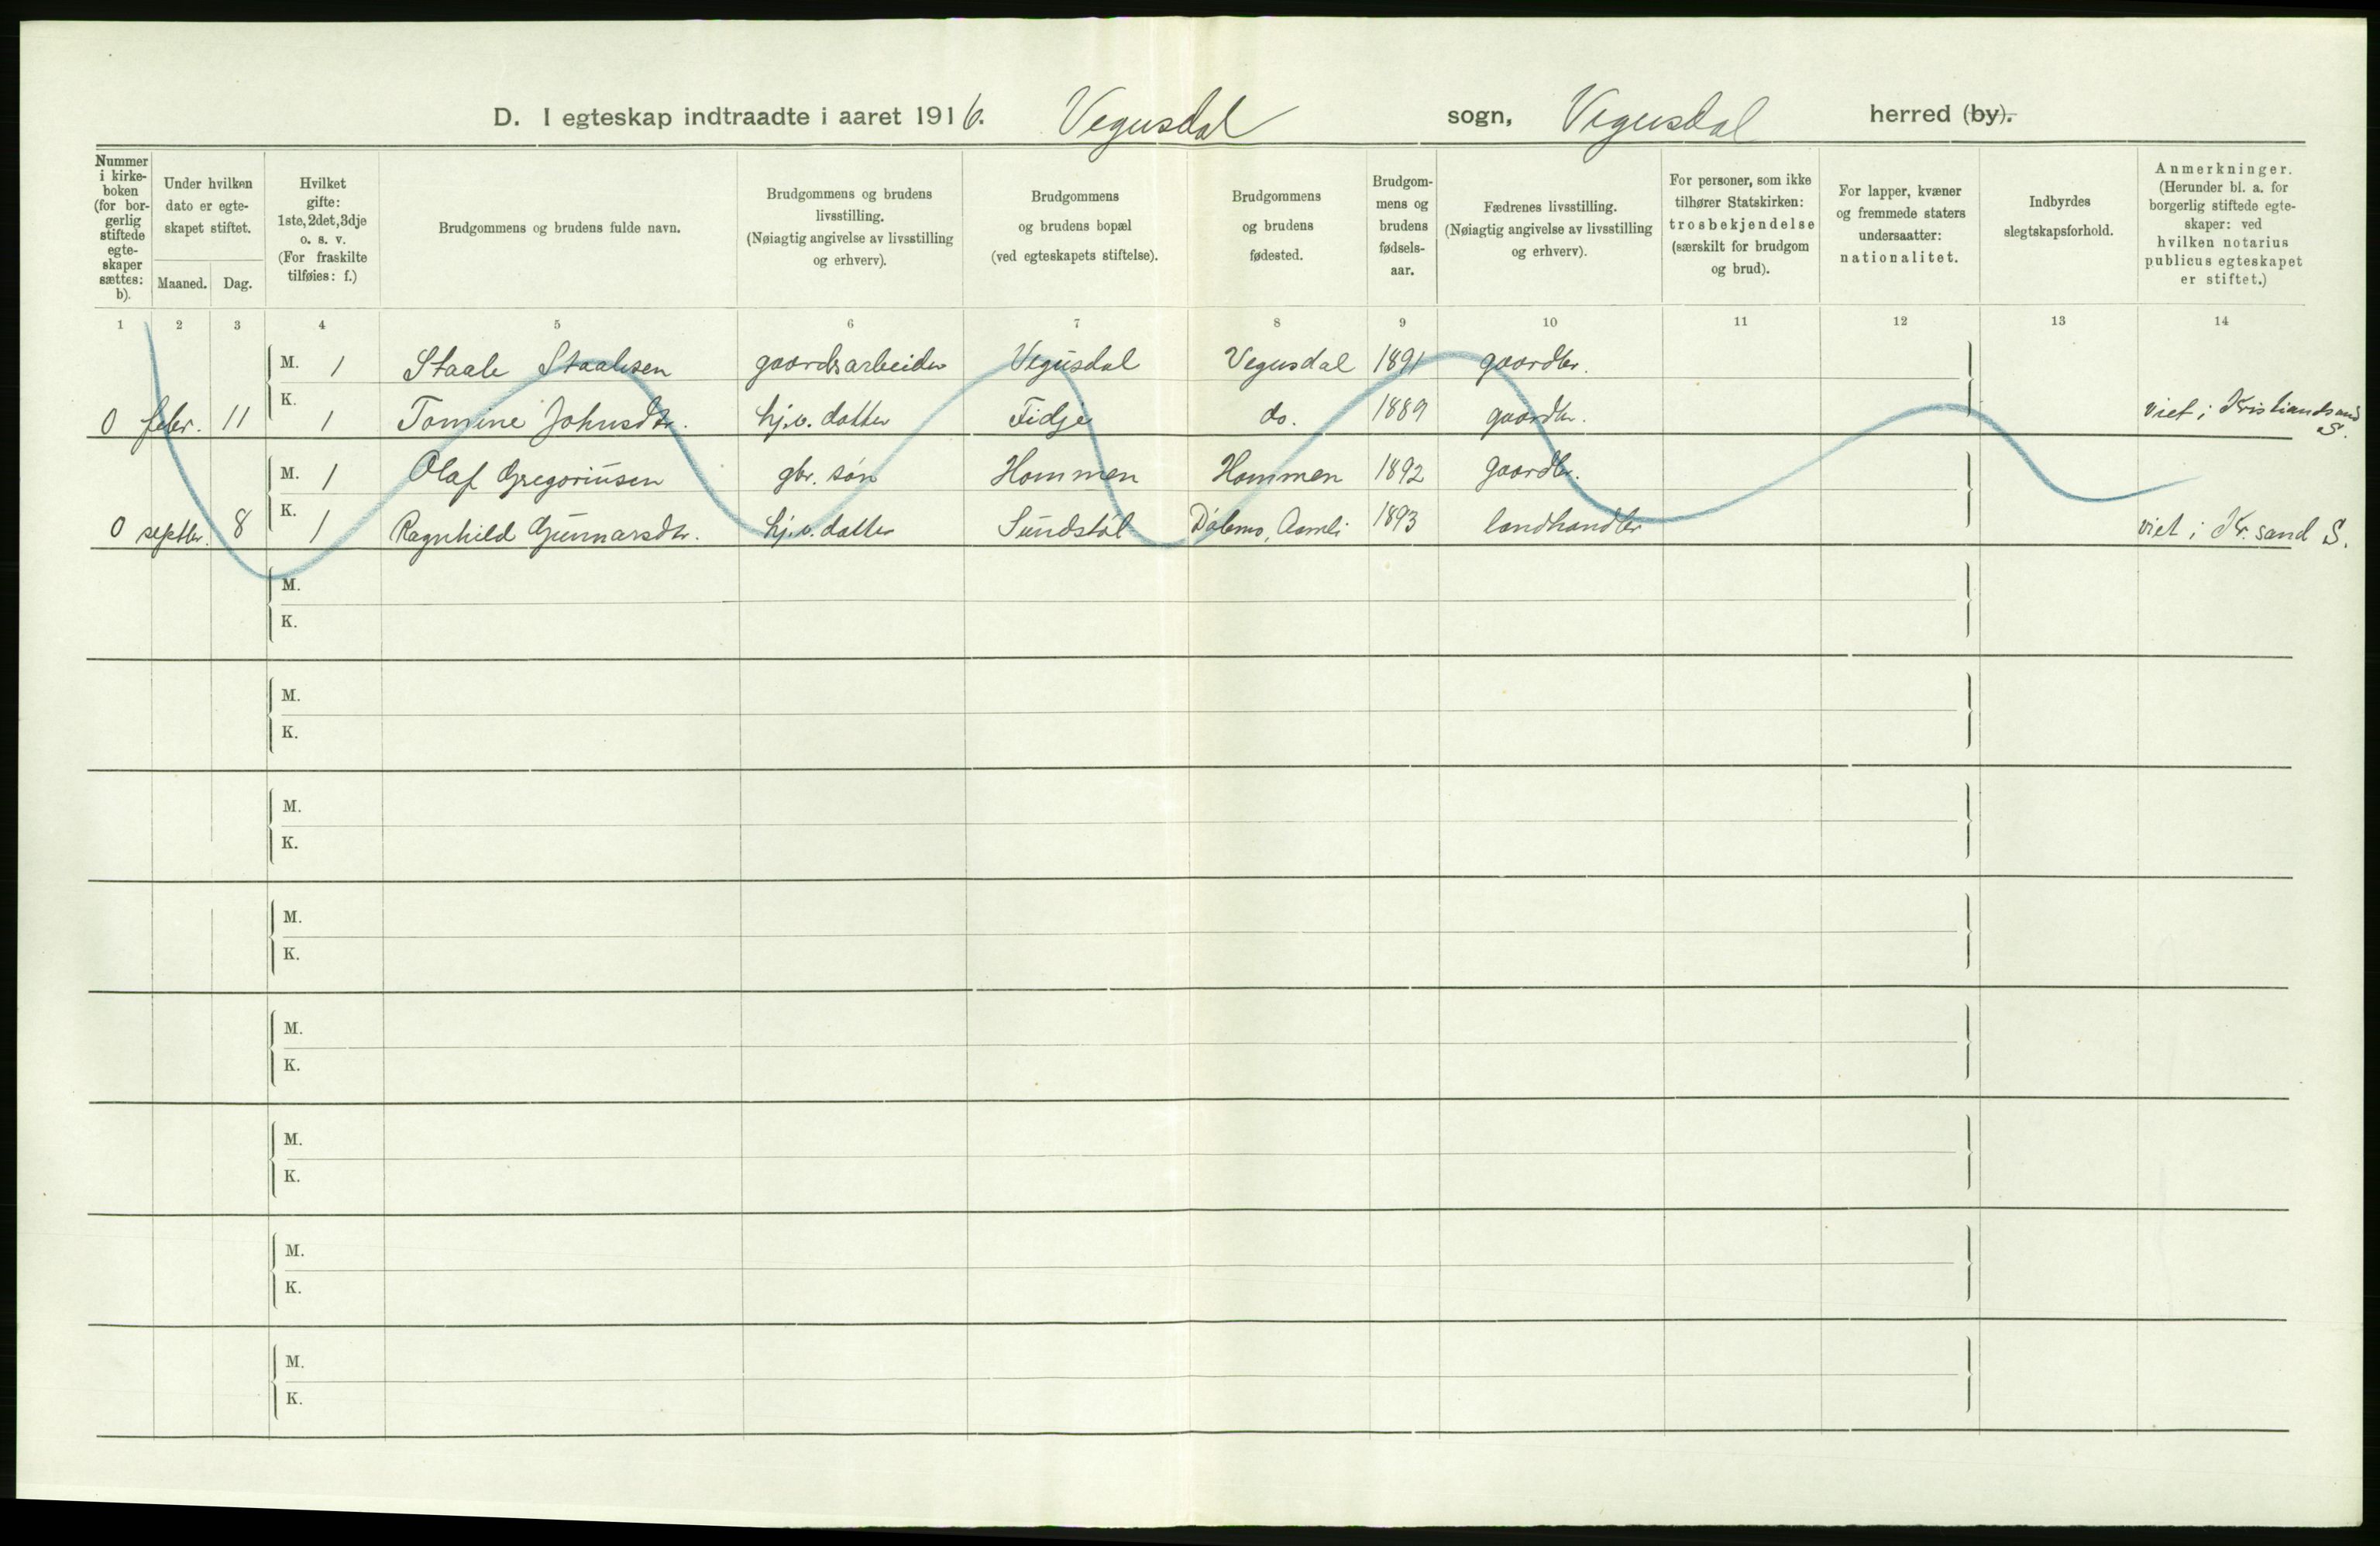 D. I egteskap indtraadte i aaret 1916. Vegusdal sogn, Vegusdal herred (by).
Nummer i kirke-boken (for bor-gerlig stiftede egte-skaper sættes: b).
Under hvilken dato er egte-skapet stiftet.
Maaned. Dag.
Hvilket gifte: 1ste, 2det, 3dje o. s. v. (For fraskilte tilføies: f.)
Brudgommens og brudens fulde navn.
Brudgommens og brudens livsstilling. (Nøiagtig angivelse av livsstilling og erhverv).
Brudgommens og brudens bopæl (ved egteskapets stiftelse).
Brudgommens og brudens fødested.
Brudgom-mens og brudens fødsels-aar.
Fædrenes livsstilling. (Nøiagtig angivelse av livsstilling og erhverv).
For personer, som ikke tilhører Statskirken: trosbekjendelse (særskilt for brudgom og brud).
For lapper, kvæner og fremmede staters undersaatter: nationalitet.
Indbyrdes slegtskapsforhold.
Anmerkninger. (Herunder bl. a. for borgerlig stiftede egte-skaper: ved hvilken notarius publicus egteskapet er stiftet.)
1 2 3 4 5 6 7 8 9 10 11 12 13 14
M. 1 Staale Staalesen gaardsarbeider Vegusdal Vegusdal 1891 gaardbr.
0 febr. 11 K. 1 Tomine Johnsdtr. hj.v. datter Fidje do. 1889 gaardbr. viet i Kristiansand S.
M. 1 Olaf Gregoriusen gbr. søn Hommen Hommen 1892 gaardbr.
0 septbr. 8 K. 1 Ragnhild Gunnarsdtr. hj.v. datter Sundstøl Dølemo, Aamli 1893 landhandler viet i Kr.sand S.
M.
K.
M.
K.
M.
K.
M.
K.
M.
K.
M.
K.
M.
K.
M.
K.